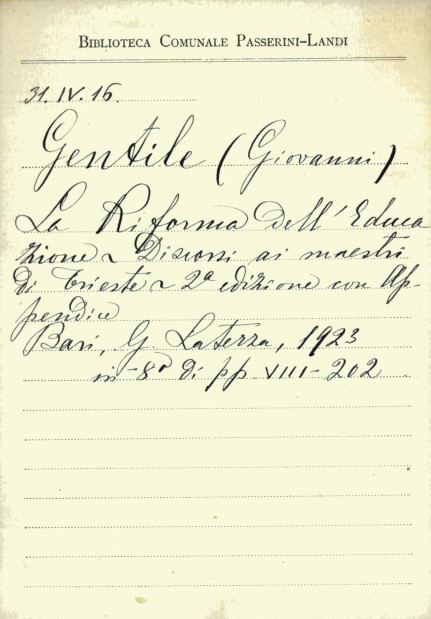 BIBLIOTECA COMUNALE PASSERINI-LANDI
31.IV.16.
Gentile (Giovanni)
La Riforma dell'Educa
zione ~ Discorsi ai maestri
di Trieste ~ 2ª edizione con Ap-
pendice
Bari, G. Laterza, 1923
in-8º di pp VIII-202